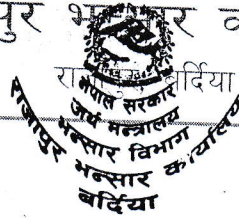 पुर भन्सार
बर्दिया
नेपाल सरकार
अर्थ मन्त्रालय
भन्सार विभाग
राजापुर भन्सार कार्यालय
बर्दिया